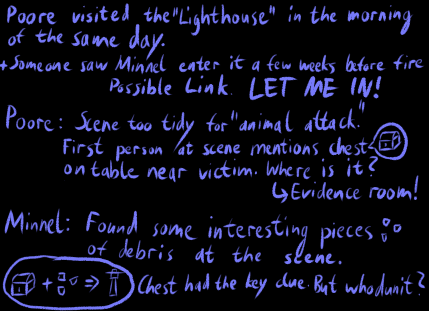 Poore visited the "Lighthouse" in the morning
of the same day.
+ Someone saw Minnel enter it a few weeks before fire
Possible Link. LET ME IN!
Poore: Scene too tidy for "animal attack."
First person at scene mentions chest
on table near victim. Where is it?
↳ Evidence room!
Minnel: Found some interesting pieces
of debris at the scene.
+ ⇒ Chest had the key clue. But whodunit?